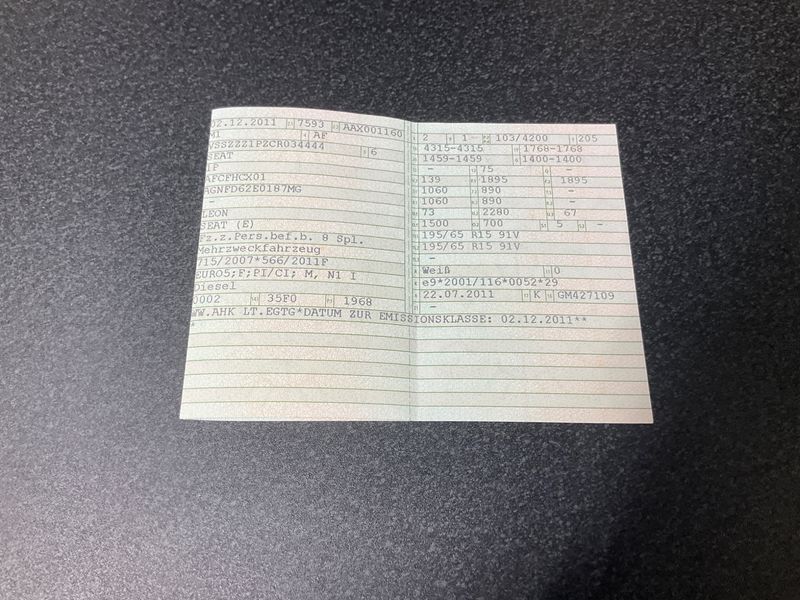 02.12.2011 7593 AAX001160
M1 AF
VSSZZZ1PZCR034444 6
SEAT
1P
AFCFHCX01
AGNFD62E0187MG
-
LEON
SEAT (E)
Fz.z.Pers.bef.b. 8 Spl.
Mehrzweckfahrzeug
715/2007*566/2011F
EURO5;F;PI/CI; M, N1 I
Diesel
0002 35F0 1968
WW.AHK LT.EGTG*DATUM ZUR EMISSIONSKLASSE: 02.12.2011**
*
2 1 103/4200 205
4315-4315 1768-1768
1459-1459 1400-1400
- 75 -
139 1895 1895
1060 890 -
1060 890 -
73 2280 67
1500 700 5 -
195/65 R15 91V
195/65 R15 91V
-
Weiß 0
e9*2001/116*0052*29
22.07.2011 K GM427109
-